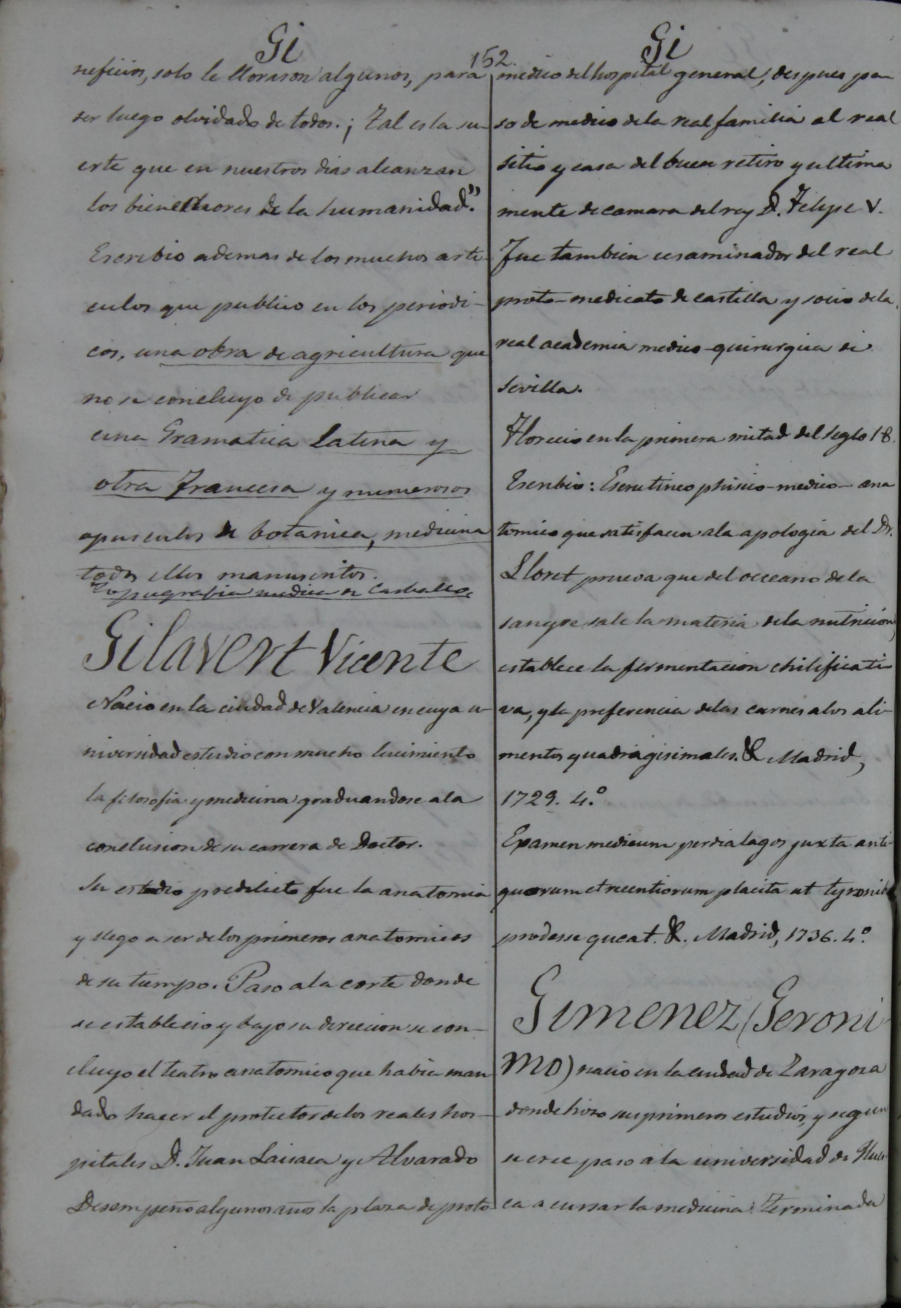 Gi
152.
Gi
neficios, solo le lloraron algunos, para
ser luego olvidado de todos. ¡Tal es la su-
erte que en nuestros dias alcanzan
los bienechores de la humanidad."
Escribio ademas de los muchos arti-
culos que publico en los periodi-
cos, una obra de agricultura que
no se concluyo de publicar
una Gramatica Latina y
otra Francesa y numerosos
opusculos de botanica, medicina
todos ellos manuscritos.
Topografia medica de Carballo.
Gilavert Vicente
Nacio en la ciudad de Valencia en cuya u-
niversidad estudio con mucho lucimiento
la filosofia y medicina graduandose a la
conclusion de su carrera de Doctor.
Su estudio predilecto fue la anatomia
y llego a ser de los primeros anatomicos
de su tiempo. Paso a la corte donde
se establecio y bajo su direccion se con-
cluyo el teatro anatomico que habia man
dado hacer el protector de los reales hos-
pitales D. Juan Laisaca y Alvarado
Desempeño algunos años la plaza de proto
medico del hospital general, despues pa-
so de medico de la real familia al real
sitio y casa del buen retiro y ultima
mente de camara del rey D. Felipe V.
Fue tambien ecsaminador del real
proto-medicato de castilla y socio de la
real academia medico-quirurgica de
Sevilla.
Florecio en la primera mitad del siglo 18.
Escribio: Escrutineo phisico-medico-ana
tomico que satisface a la apologia del Dr.
Lloret prueva que del occeano de la
sangre sale la materia de la nutricion,
establece la fermentacion chilificati
va, y la preferencia de las carnes a los ali-
mentos quadragesimales. & Madrid,
1729. 4.º
Examen medicum per dialagos juxta anti-
quorum et recentiorum placita ut tyronib
prodesse queat. &. Madrid, 1736. 4.º
Gimenez (Geroni-
mo) nacio en la ciudad de Zaragoza
donde hizo sus primeros estudios, y segun
se cree paso a la universidad de Hues-
ca a cursar la medicina. Terminada